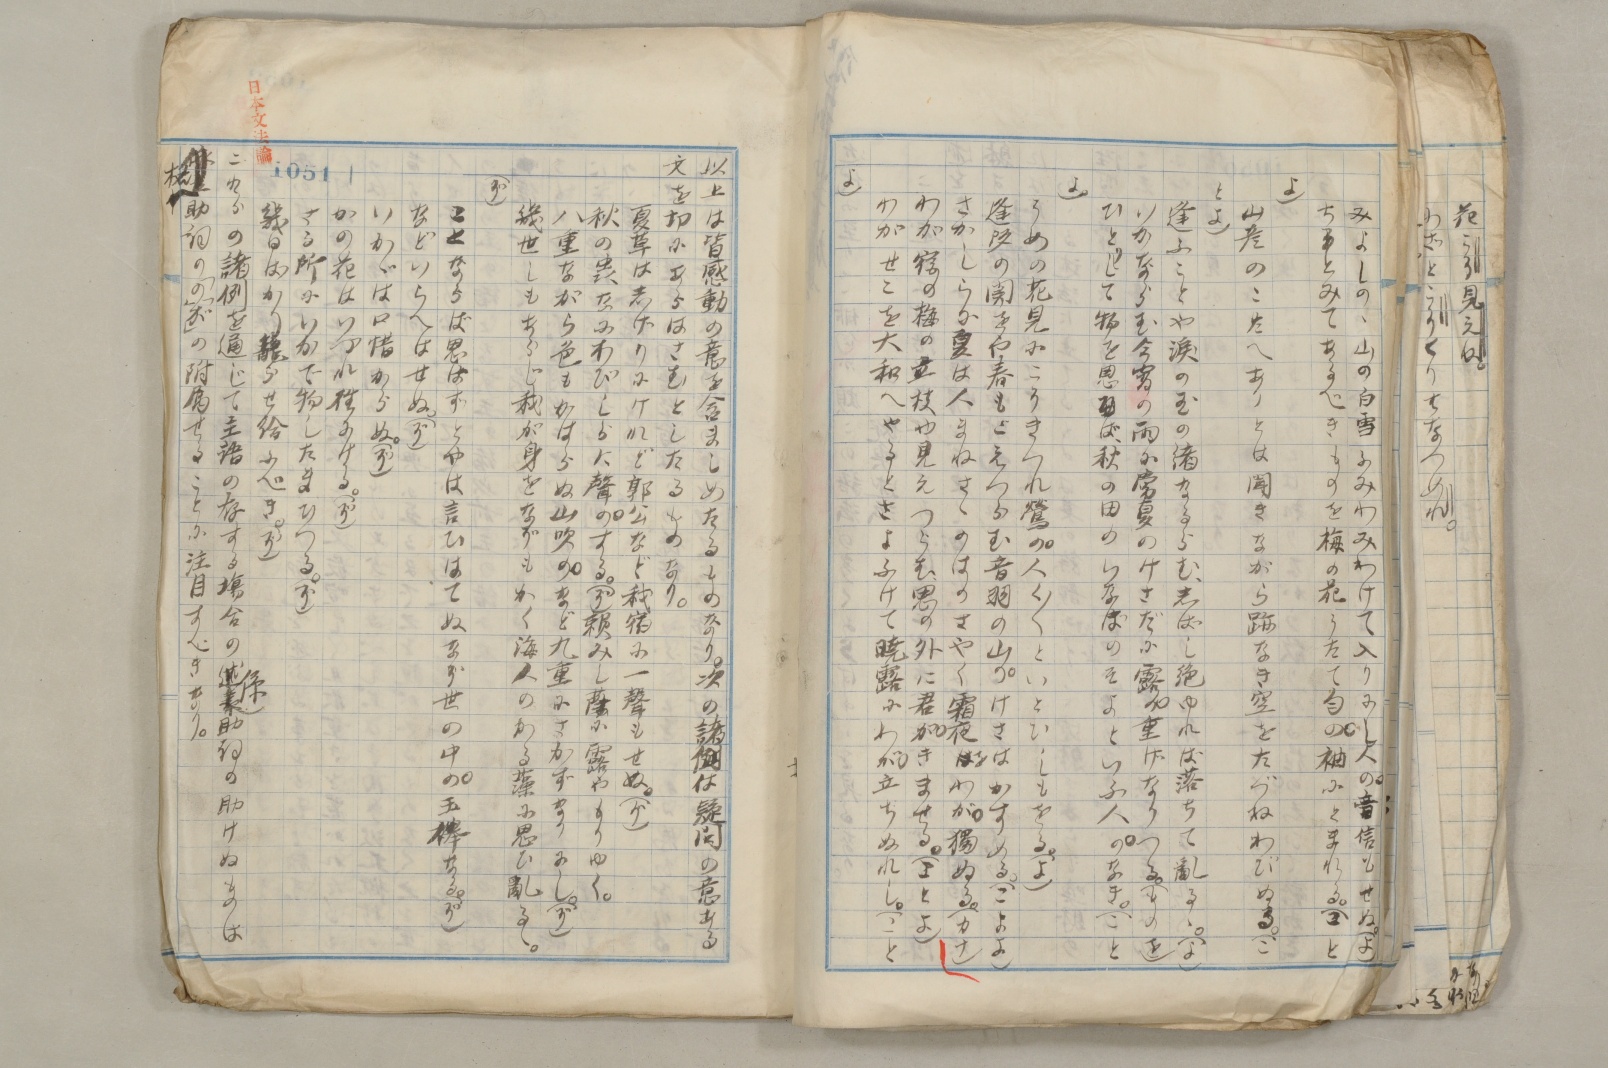 花こそ見えね
みよしのゝ山の白雪ふみわけて入りにし人の音信もせぬ。(よ)
ちるとみてあるべきものを梅の花うたて匂の袖にとまれる。(こと
よ)
山彦のこたへありとは聞きながら跡なき空をたづねわびぬる。(こ
とよ)
逢ふことや涙の玉の緒なるらむ、しばし絶ゆれば落ちて乱るゝ。(よ)
いかならむ今宵の雨に常夏のけさだに露の重げなりつる。(ものを)
ひとりして物を思へば、秋の田のいなばのそよといふ人のなき。(こと
よ)
うめの花見にこそきつれ鶯の人くくといとひしもをる。(よ)
逢阪の関をや春もこえつらむ音羽の山のけさはかすめる。(ことよ)
さかしらに夏は人まねさゝのはのさやぐ霜夜をわが獨ぬる。(カナ)
わが宿の梅の立枝や見えつらむ思の外に君がきませる。(ことよ)
わがせこを大和へやるとさよふけて暁露にわが立ちぬれし。(こと
よ)
以上は皆感動の意を含ましめたるものなり。次の諸例は疑問の意ある
文を切にあらはさむとしたるものなり。
夏草はしげりにけれど郭公など我宿に一聲もせぬ。(ぞ)
秋の蟲なにわびしらに聲のする。(ぞ)頼みし蔭に露やもりゆく。
八重ながら色もかはらぬ山吹のなど九重にさかずなりにし。(ぞ)
幾世しもあらじ我が身をなぞもかく海人のかる藻に思ひ亂るゝ。
(ぞ)
ことならば思はずとやは言ひはてぬなぞ世の中の玉襷なる。(ぞ)
などいらへはせぬ。(ぞ)
いかゞは口惜からぬ。(ぞ)
かの花はいづれ
さる所にいかで物したまひつる。(ぞ)
幾日ばかり籠らせ給ふべき。(ぞ)
これらの諸例を通じて主語の存する場合の述素助詞の助けぬもの は
係
格助詞の「の」「が」の附屬せることに注目すべきなり。
日本文法論
1051